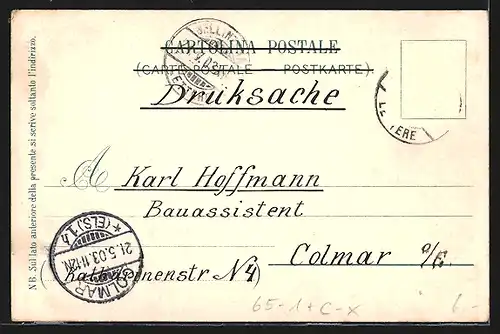 CARTOLINA POSTALE
(CARTE POSTALE — POSTKARTE).
Drüksache
A Karl Hoffmann
Bauassistent
Colmar o/E.
Katharinenstr N 4
NB. Sul lato anteriore della presente si scrive soltanto l'indirizzo.
BELLIN
LE ERE
COLMAR
21.5.03.11-12N.
*(ELS)1h
65-1+C-X
6.-